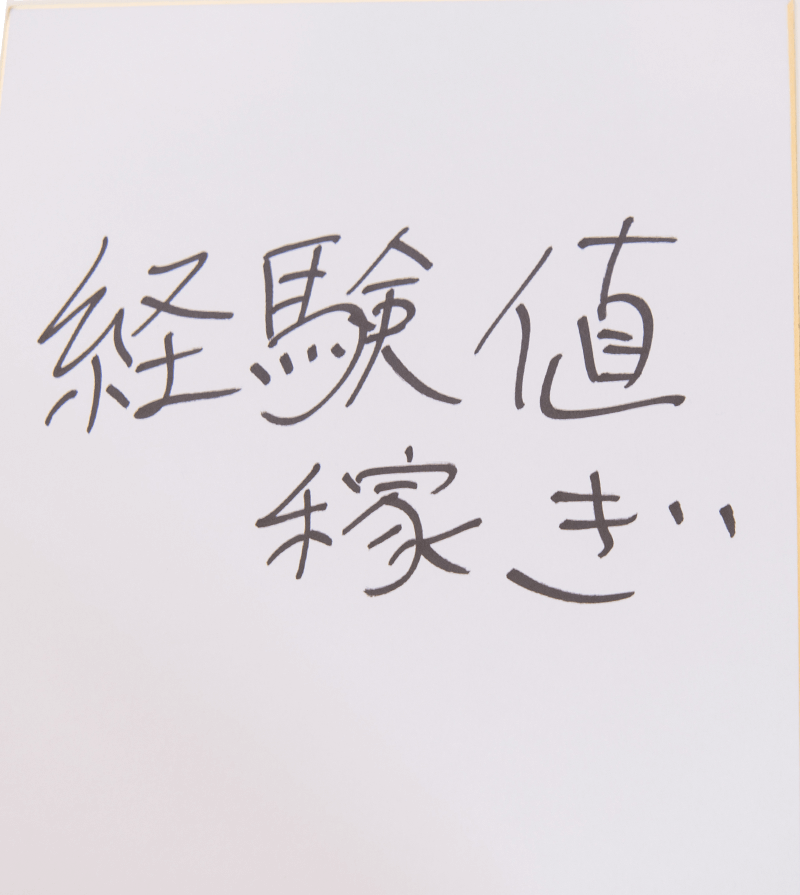 経験値
稼ぎ